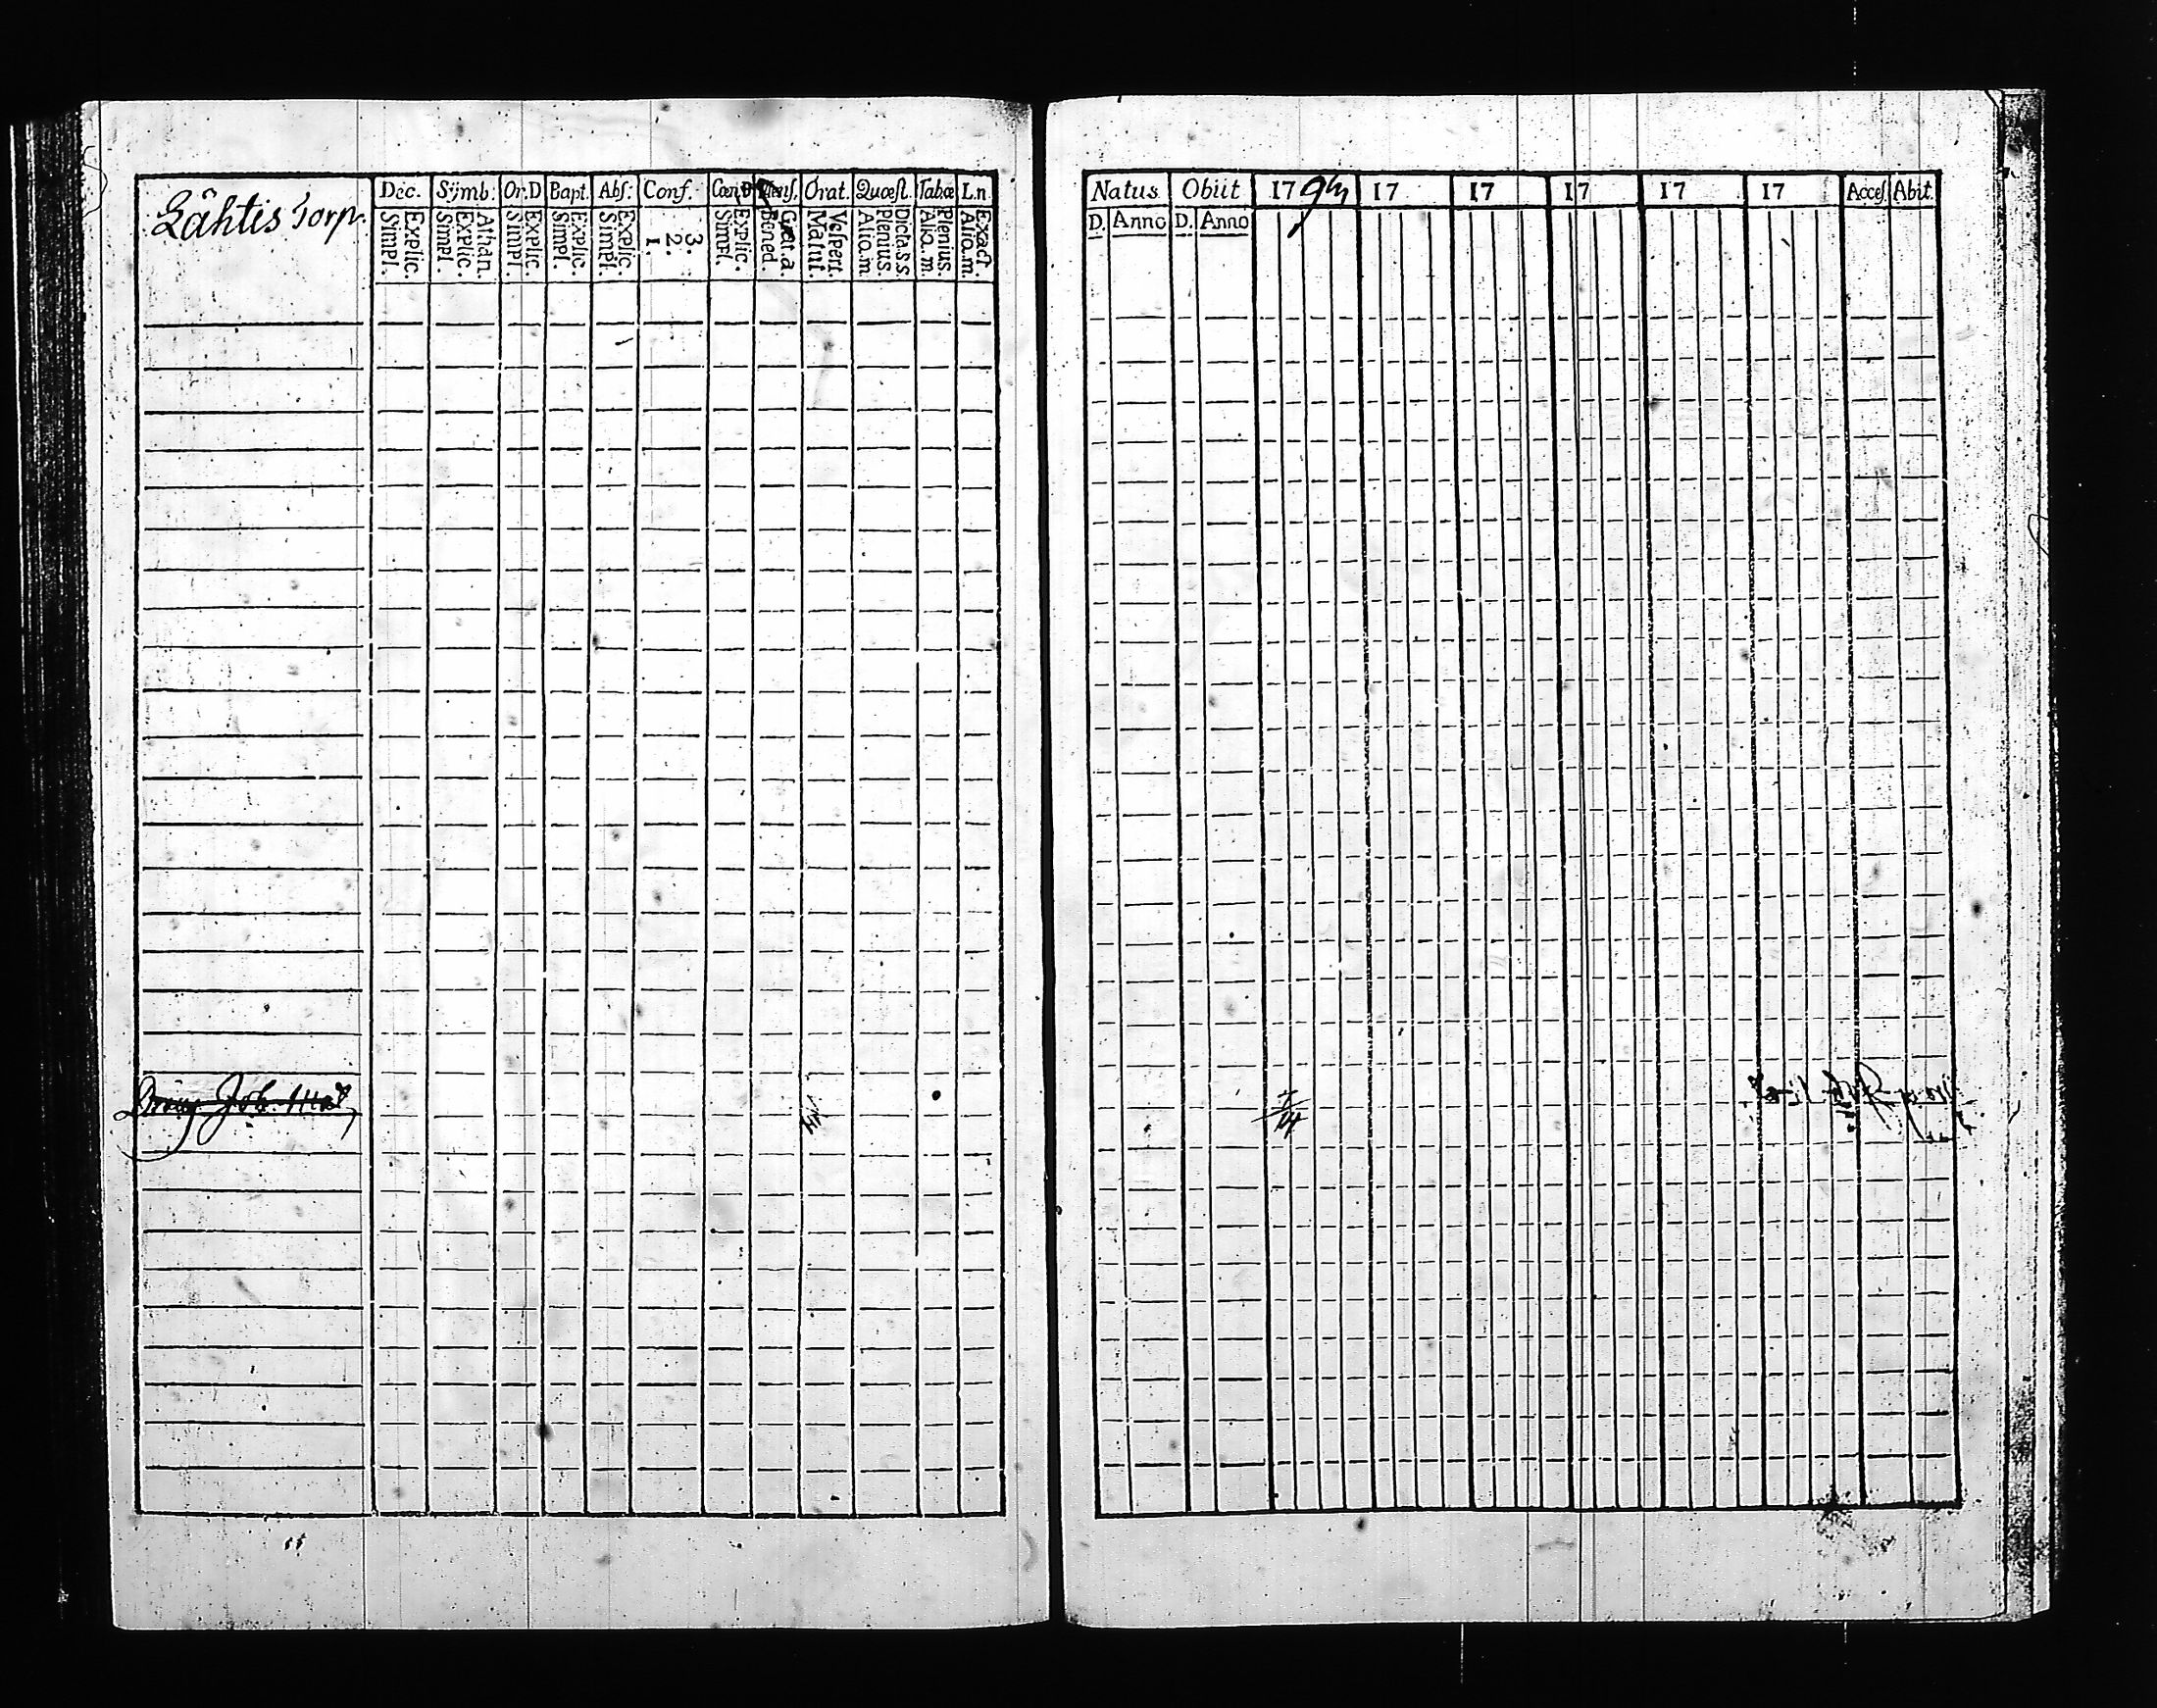 Lähtis Torp.
Dec. Sÿmb. Or.D Bapt. Abs. Conf. Cœn.D Mens. Orat. Quæst. Tabæ L.n
Explic. Simpl. Athan. Explic. Simpl. Explic. Simpl. Explic. Simpl. Explic. Simpl. 3. 2. 1. Explic. Simpl. Grat.a. Bened. Vespert. Matut. Dicta.s.s. Plenius. Alio.m. Plenius. Alio.m. Exact. Alio.m.
Dräng Joh. Mat
Natus Obiit 179 17 17 17 17 17 Acces. Abit.
D. Anno D. Anno